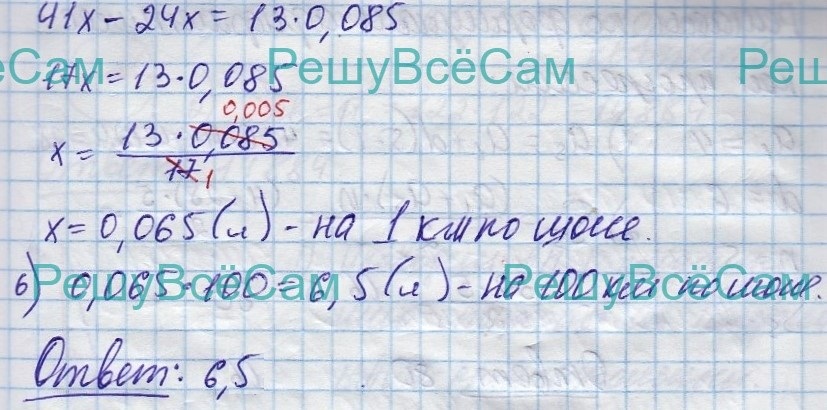 41x - 24x = 13·0,085
17x = 13·0,085
0,005
x = 13·0,085 / 17 1
x = 0,065 (л) - на 1 км по шоссе.
6) 0,065·100 = 6,5 (л) - на 100 км по шоссе.
Ответ: 6,5
РешуВсёСам
РешуВсёСам
РешуВсёСам
РешуВсёСам